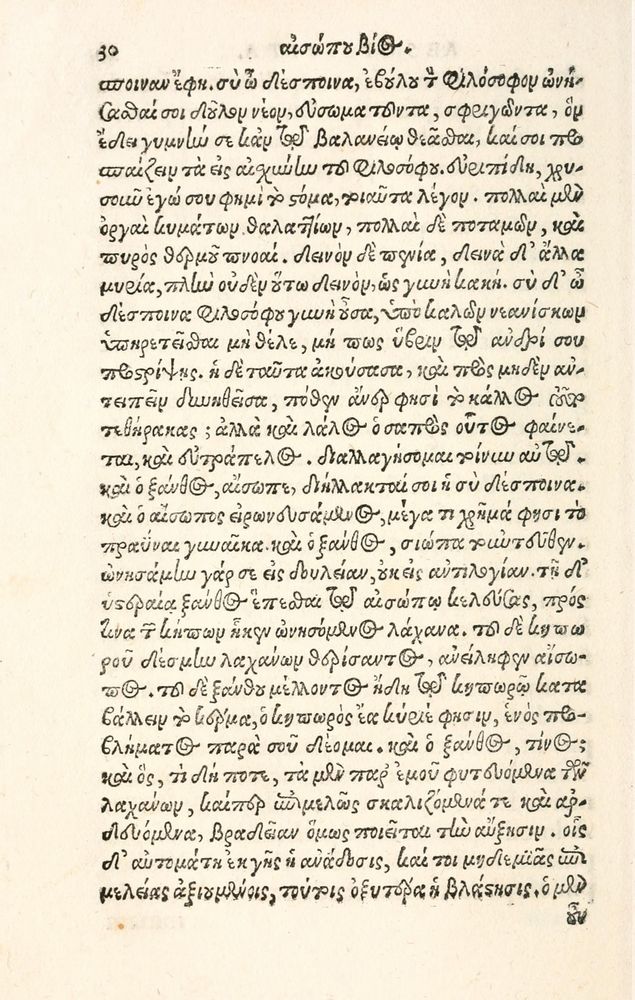 30 αἰσώπου βίος.
ποιναν ἔφη. σὺ ὦ δέσποινα, ἐβούλου τὸν φιλόσοφον ὠνή-
σασθαί σοι δοῦλον νέον, εὐσωματοῦντα, σφριγῶντα, ὃν
ἔδει γυμνὴν σε κἀν τῷ βαλανείῳ θεᾶσθαι, καί σοι προ
σπαίζειν τὰ εἰς αἰσχύνην τοῦ φιλοσόφου. εὐριπίδη, χρυ-
σοῦν ἐγώ σου φημὶ τὸ στόμα, τοιαῦτα λέγον. πολλαὶ μὲν
ὀργαὶ κυμάτων θαλαττίων, πολλαὶ δὲ ποταμῶν, καὶ
πυρὸς θερμοῦ πνοαί. δεινὸν δὲ πενία, δεινὰ δ' ἄλλα
μυρία, πλὴν οὐδὲν οὕτω δεινὸν, ὡς γυνὴ κακή. σὺ δ' ὦ
δέσποινα φιλοσόφου γυνὴ οὖσα, ὑπὸ καλῶν νεανίσκων
ὑπηρετεῖσθαι μὴ θέλε, μή πως ὕβριν τῷ ἀνδρί σου
προστρίψῃς. ἡ δὲ ταῦτα ἀκούσασα, καὶ πρὸς μηδὲν ἀν-
τειπεῖν δυνηθεῖσα, πόθεν ἄνερ φησὶ τὸ κάλλος τοῦτο
τεθήρακας; ἀλλὰ καὶ λάλος ὁ σαπρὸς οὗτος φαίνε-
ται, καὶ εὐτράπελος. διαλλαγήσομαι τοίνυν αὐτῷ.
καὶ ὁ ξάνθος, αἴσωπε, διήλλακταί σοι ἡ σὺ δέσποινα.
καὶ ὁ αἴσωπος εἰρωνευσάμενος, μέγα τι χρῆμά φησι τὸ
πραῧναι γυναῖκα. καὶ ὁ ξάνθος, σιώπα τοὐντεῦθεν.
ὠνησάμην γάρ σε εἰς δουλείαν, οὐκ εἰς ἀντιλογίαν. τῇ δ'
ὑστεραίᾳ ξάνθος ἕπεσθαι τῷ αἰσώπῳ κελεύσας, πρός
τινα τῶν κήπων ἧκεν ὠνησόμενος λάχανα. τοῦ δὲ κηπω
ροῦ δέσμην λαχάνων θερίσαντος, ἀνείληφεν αἴσω-
πος. τοῦ δὲ ξάνθου μέλλοντος ἤδη τῷ κηπωρῷ κατα
βάλλειν τὸ κέρμα, ὁ κηπωρὸς ἔα κύριέ φησιν, ἑνὸς προ-
βλήματος παρὰ σοῦ δέομαι. καὶ ὁ ξάνθος, τίνος;
καὶ ὃς, τί δή ποτε, τὰ μὲν παρ' ἐμοῦ φυτευόμενα τῶν
λαχάνων, καίπερ ἐπιμελῶς σκαλιζόμενά τε καὶ ἀρ-
δευόμενα, βραδεῖαν ὅμως ποιεῖται τὴν αὔξησιν. οἷς
δ' αὐτομάτη ἐκ γῆς ἡ ἀνάδοσις, καί τοι μηδεμιᾶς ἐπι
μελείας ἀξιουμένοις, τούτοις ὀξυτέρα ἡ βλάστησις. ὁ μὲν
οὖν